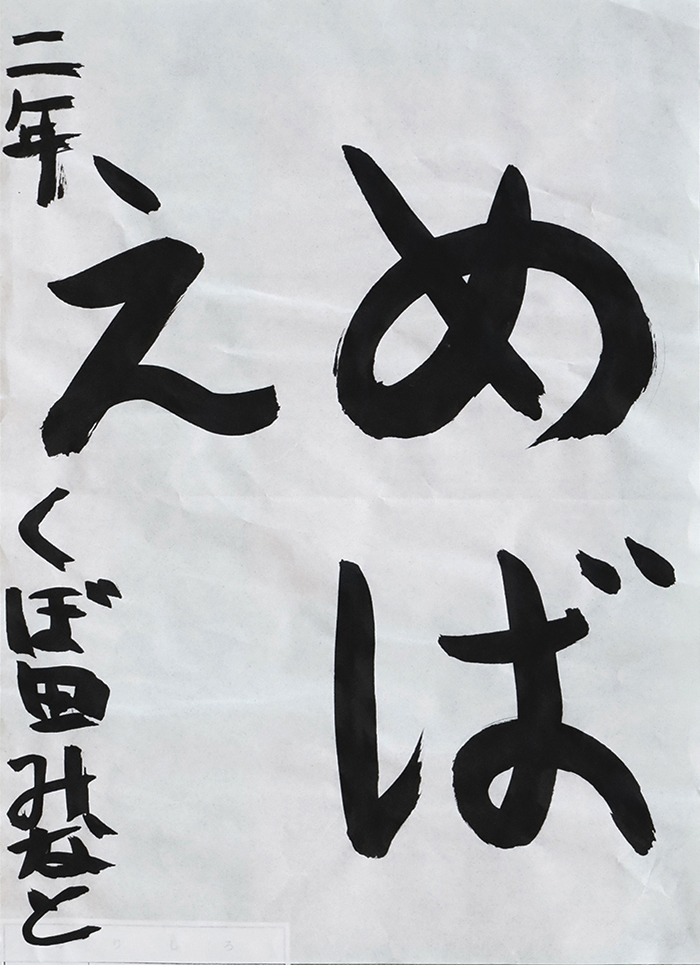 めば
え
二年 くぼ田みなと